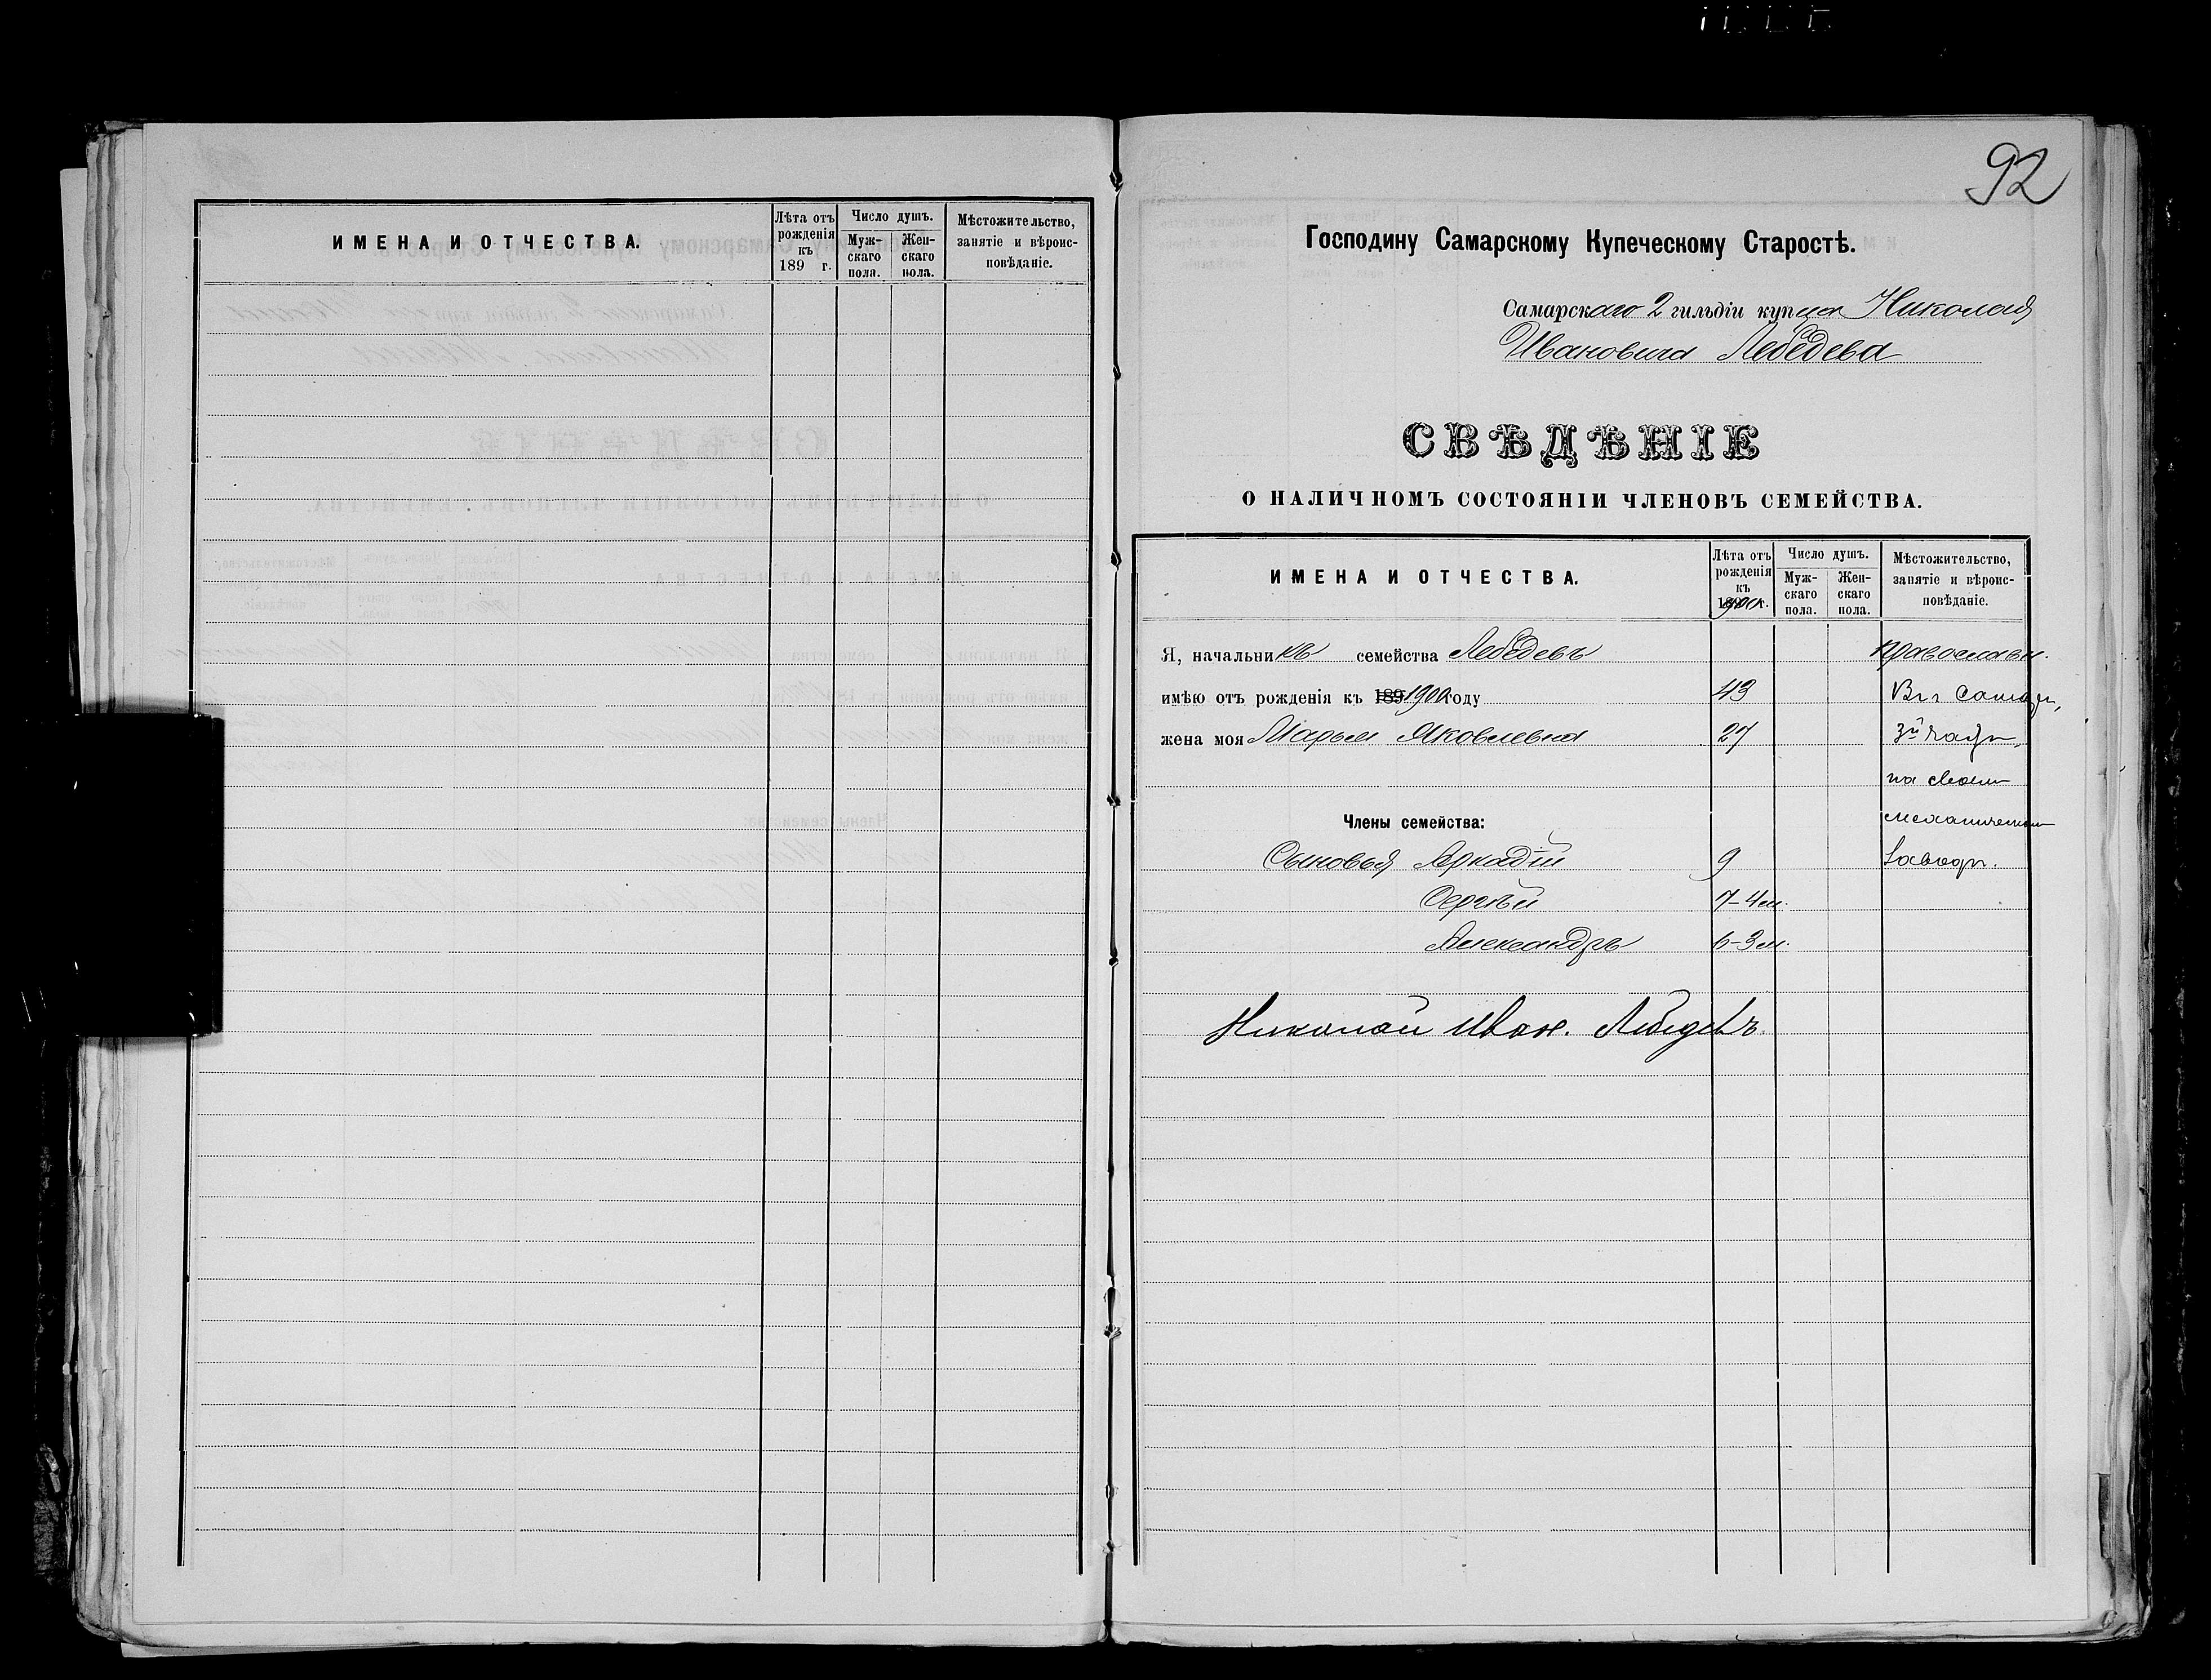 ИМЕНА И ОТЧЕСТВА.
Лѣта отъ
рожденія
къ
189 г.
Число душъ.
Муж-
скаго
пола.
Жен-
скаго
пола.
Мѣстожительство,
занятіе и вѣроис-
повѣданіе.
92
Господину Самарскому Купеческому Старостѣ.
Самарскаго 2 гильдіи купца Николая
Ивановича Лебедева
СВѢДѢНІЕ
О НАЛИЧНОМЪ СОСТОЯНІИ ЧЛЕНОВЪ СЕМЕЙСТВА.
ИМЕНА И ОТЧЕСТВА.
Лѣта отъ
рожденія
къ
1900 г.
Число душъ.
Муж-
скаго
пола.
Жен-
скаго
пола.
Мѣстожительство,
занятіе и вѣроис-
повѣданіе.
Я, начальникъ семейства Лебедевъ православн.
имѣю отъ рожденія къ 189 1900 году 43 Въ г. Самарѣ,
жена моя Марья Яковлевна 27 3й части,
на своемъ
Члены семейства: механическомъ
Сыновья Аркадій 9 заводѣ.
Сергѣй 7-4 м.
Александръ 6-3 м.
Николай Иван. Лебедевъ.